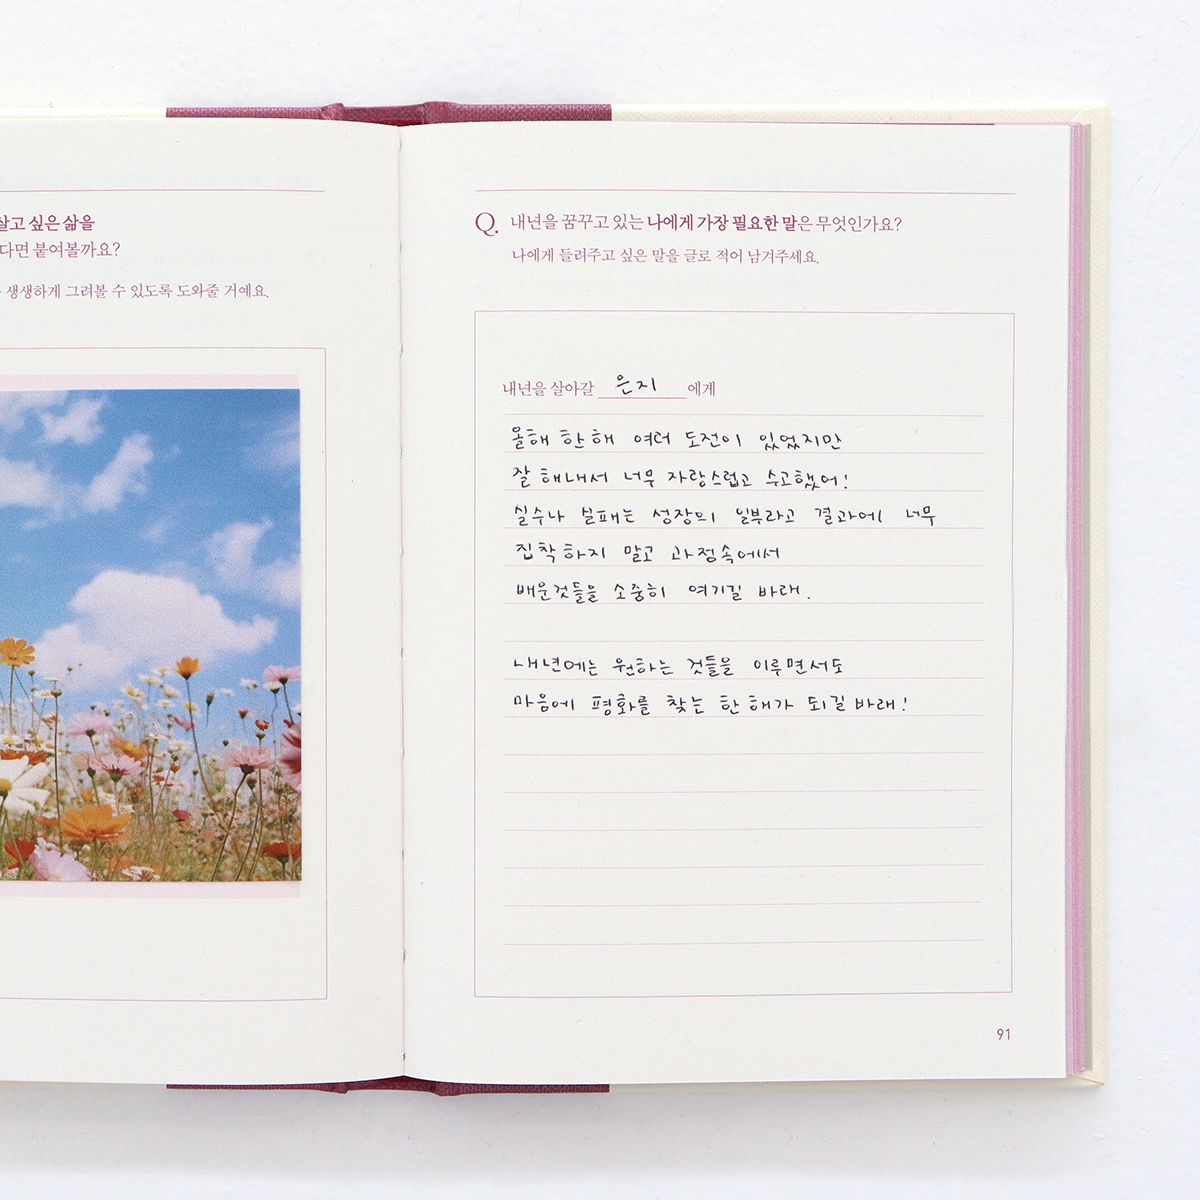 살고 싶은 삶을
다면 붙여볼까요?
생생하게 그려볼 수 있도록 도와줄 거예요.
Q. 내년을 꿈꾸고 있는 나에게 가장 필요한 말은 무엇인가요?
나에게 들려주고 싶은 말을 글로 적어 남겨주세요.
내년을 살아갈 은지 에게
올해 한해 여러 도전이 있었지만
잘 해내서 너무 자랑스럽고 수고했어!
실수나 실패는 성장의 일부라고 결과에 너무
집착하지 말고 과정속에서
배운것들을 소중히 여기길 바래.
내년에는 원하는 것들을 이루면서도
마음에 평화를 찾는 한해가 되길바래!
91